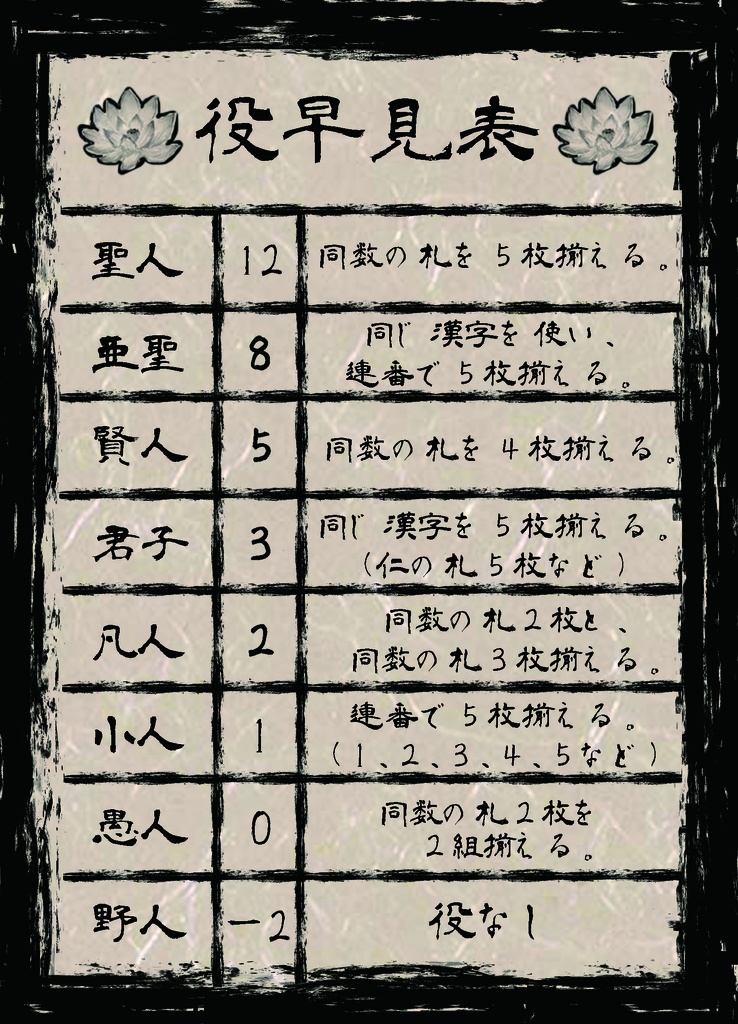 役早見表
聖人 12 同数の札を5枚揃える。
亜聖 8 同じ漢字を使い、
連番で5枚揃える。
賢人 5 同数の札を4枚揃える。
君子 3 同じ漢字を5枚揃える。
(仁の札5枚など)
凡人 2 同数の札2枚と、
同数の札3枚揃える。
小人 1 連番で5枚揃える。
(1、2、3、4、5など)
愚人 0 同数の札2枚を
2組揃える。
野人 -2 役なし